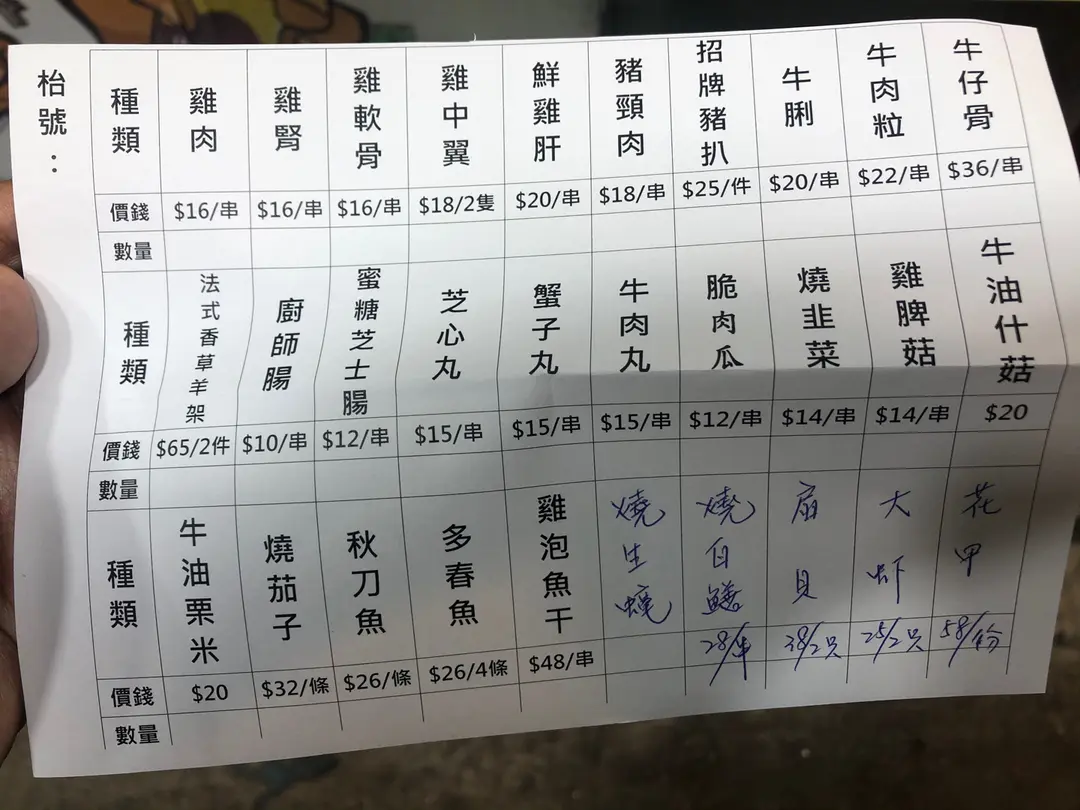 枱號：
種類 雞肉 雞腎 雞軟骨 雞中翼 鮮雞肝 豬頸肉 招牌豬扒 牛脷 牛肉粒 牛仔骨
價錢 $16/串 $16/串 $16/串 $18/2隻 $20/串 $18/串 $25/件 $20/串 $22/串 $36/串
數量
種類 法式香草羊架 廚師腸 蜜糖芝士腸 芝心丸 蟹子丸 牛肉丸 脆肉瓜 燒韭菜 雞脾菇 牛油什菇
價錢 $65/2件 $10/串 $12/串 $15/串 $15/串 $15/串 $12/串 $14/串 $14/串 $20
數量
種類 牛油栗米 燒茄子 秋刀魚 多春魚 雞泡魚干 燒生蠔 燒白鱔 扇貝 大虾 花甲
價錢 $20 $32/條 $26/條 $26/4條 $48/串 28/串 38/2只 25/2只 58/份
數量